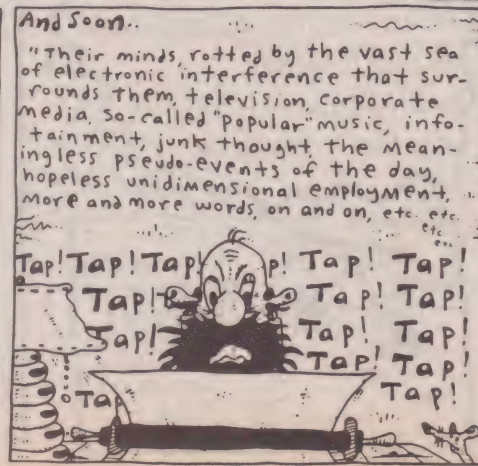 And Soon..
"Their minds, rotted by the vast sea
of electronic interference that sur-
rounds them, television, corporate
media, so-called "popular" music, info-
tainment, junk thought, the mean-
ingless pseudo-events of the day,
hopeless unidimensional employment,
more and more words, on and on, etc. etc.
etc.
etc..
Tap! Tap! Tap! p! Tap! Tap!
Tap! Tap! Tap!
Tap! Tap! Tap!
Tap! Tap!
Ta Tap!